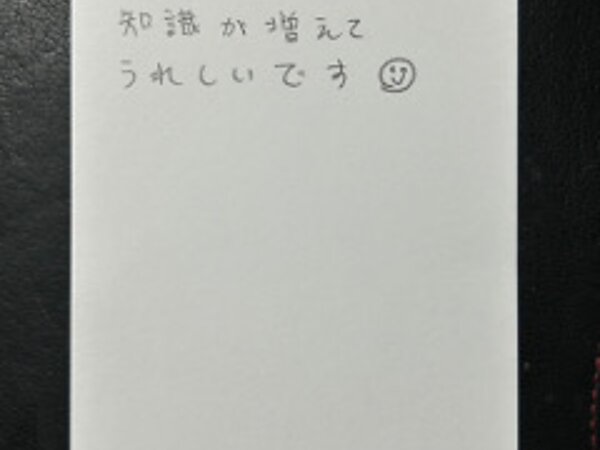 知識が増えて
うれしいです